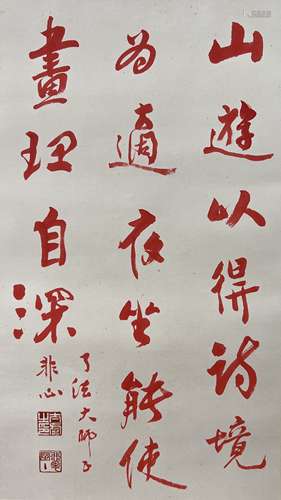 山遊以得詩境
為適夜坐能使
畫理自深
了法大師正
非心